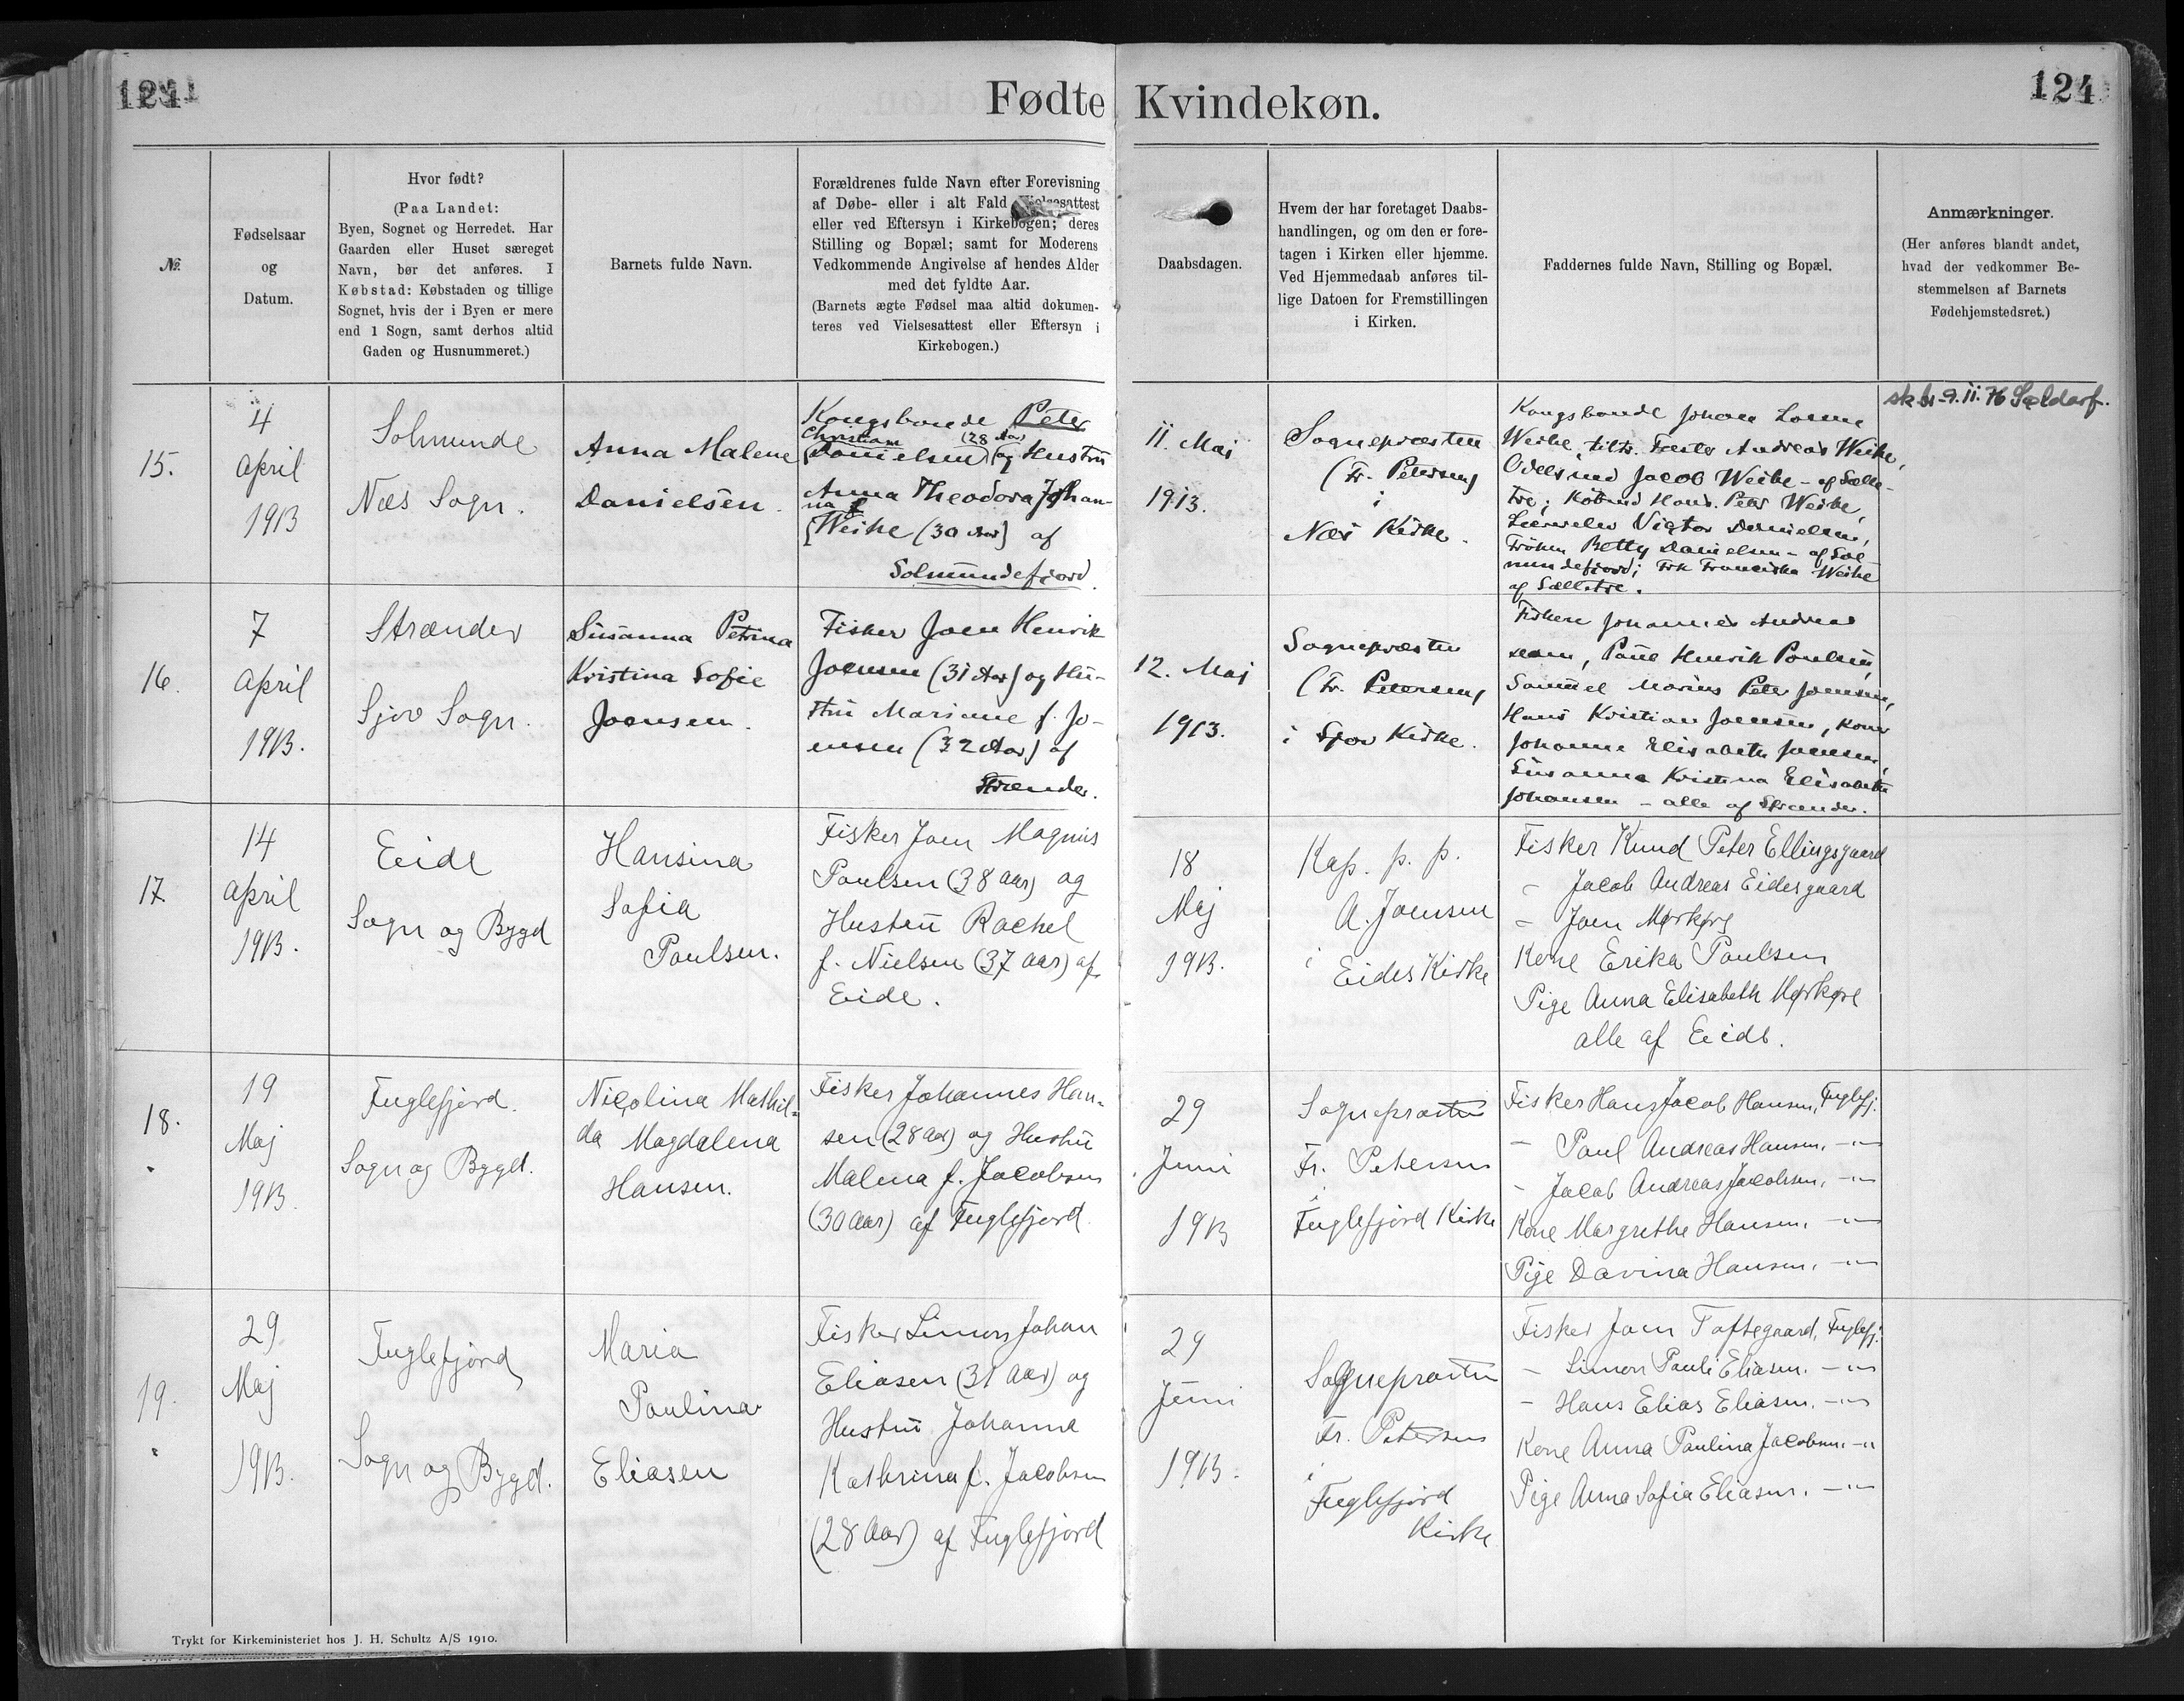 124
Fødte Kvindekøn.
124
№
Fødselsaar
og
Datum.
Hvor født?
(Paa Landet:
Byen, Sognet og Herredet. Har
Gaarden eller Huset særeget
Navn, bør det anføres. I
Købstad: Købstaden og tillige
Sognet, hvis der i Byen er mere
end 1 Sogn, samt derhos altid
Gaden og Husnummeret.)
Barnets fulde Navn.
Forældrenes fulde Navn efter Forevisning
af Døbe- eller i alt Fald Vielsesattest
eller ved Eftersyn i Kirkebogen; deres
Stilling og Bopæl; samt for Moderens
Vedkommende Angivelse af hendes Alder
med det fyldte Aar.
(Barnets ægte Fødsel maa altid dokumen-
teres ved Vielsesattest eller Eftersyn i
Kirkebogen.)
Daabsdagen.
Hvem der har foretaget Daabs-
handlingen, og om den er fore-
tagen i Kirken eller hjemme.
Ved Hjemmedaab anføres til-
lige Datoen for Fremstillingen
i Kirken.
Faddernes fulde Navn, Stilling og Bopæl.
Anmærkninger.
(Her anføres blandt andet,
hvad der vedkommer Be-
stemmelsen af Barnets
Fødehjemstedsret.)
15.
4
April
1913
Solmunde
Næs Sogn.
Anna Malene
Danielsen.
Kongsbonde Peter
Christian (28 Aar)
Danielsen og Hustru
Anna Theodora Johan-
na f.
Weihe (30 Aar) af
Solmundefjord.
11. Maj
1913.
Sognepræsten
(Fr. Petersen)
i
Næs Kirke.
Kongsbonde Johan
Weihe, Andreas Weihe,
Odelsmd Jacob Weihe - af Selle-
træ; Købmd Hans Peter Weihe,
Vigtor Danielsen,
Frøken Betty Danielsen - af Sol-
mundefjord; Frk Franciska Weihe
af Selletræ.
9.11.76
16.
7
April
1913.
Strænder
Sjov Sogn.
Susanna Petrina
Kristina Sofie
Joensen.
Fisker Joen Henrik
Joensen (31 Aar) og Hu-
stru Mariane f. Jo-
ensen (32 Aar) af
Strænder.
12. Maj
1913.
Sognepræsten
(Fr. Petersen)
i Sjov Kirke.
Fiskere Johannes Andrea-
sen, Poul Henrik Poulsen,
Samuel Marius Peter Joensen,
Hans Kristian Joensen, Kone
Johanne Elisabeth Joensen,
Susanna Kristina Elisabeth
Johansen - alle af Strænder.
17.
14
April
1913.
Eide
Sogn og Bygd
Hansina
Sofia
Poulsen.
Fisker Joen Magnus
Poulsen (38 Aar) og
Hustru Rachel
f. Nielsen (37 Aar) af
Eide.
18
Maj
1913.
Kap. p. p.
A. Joensen
i
Eides Kirke
Fisker Knud Peter Ellingsgaard
- Jacob Andreas Eidesgaard
- Joen Mørkøre
Kone Erika Poulsen
Pige Anna Elisabeth Mørkøre
alle af Eide.
18.
19
Maj
1913.
Fuglefjord.
Sogn og Bygd.
Nicolina Mathil-
da Magdalena
Hansen.
Fisker Johannes Han-
sen (28 Aar) og Hustru
Malena f. Jacobsen
(30 Aar) af Fuglefjord.
29
Juni
1913
Sognepræsten
Fr. Petersen
i
Fuglefjord Kirke
Fisker Hans Jacob Hansen, Fuglefj.
- Poul Andreas Hansen. -"-
- Jacob Andreas Jacobsen. -"-
Kone Margrethe Hansen. -"-
Pige Davina Hansen. -"-
19.
29
Maj
1913.
Fuglefjord
Sogn og Bygd.
Maria
Paulina
Eliasen
Fisker Simon Johan
Eliasen (31 Aar) og
Hustru Johanna
Kathrina f. Jacobsen
(28 Aar) af Fuglefjord
29
Juni
1913.
Sognepræsten
Fr. Petersen
i
Fuglefjord
Kirke
Fisker Joen Toftegaard, Fuglefj.
- Simon Pauli Eliasen. -"-
- Hans Elias Eliasen. -"-
Kone Anna Paulina Jacobsen. -"-
Pige Anna Sofia Eliasen. -"-
Trykt for Kirkeministeriet hos J. H. Schultz A/S 1910.